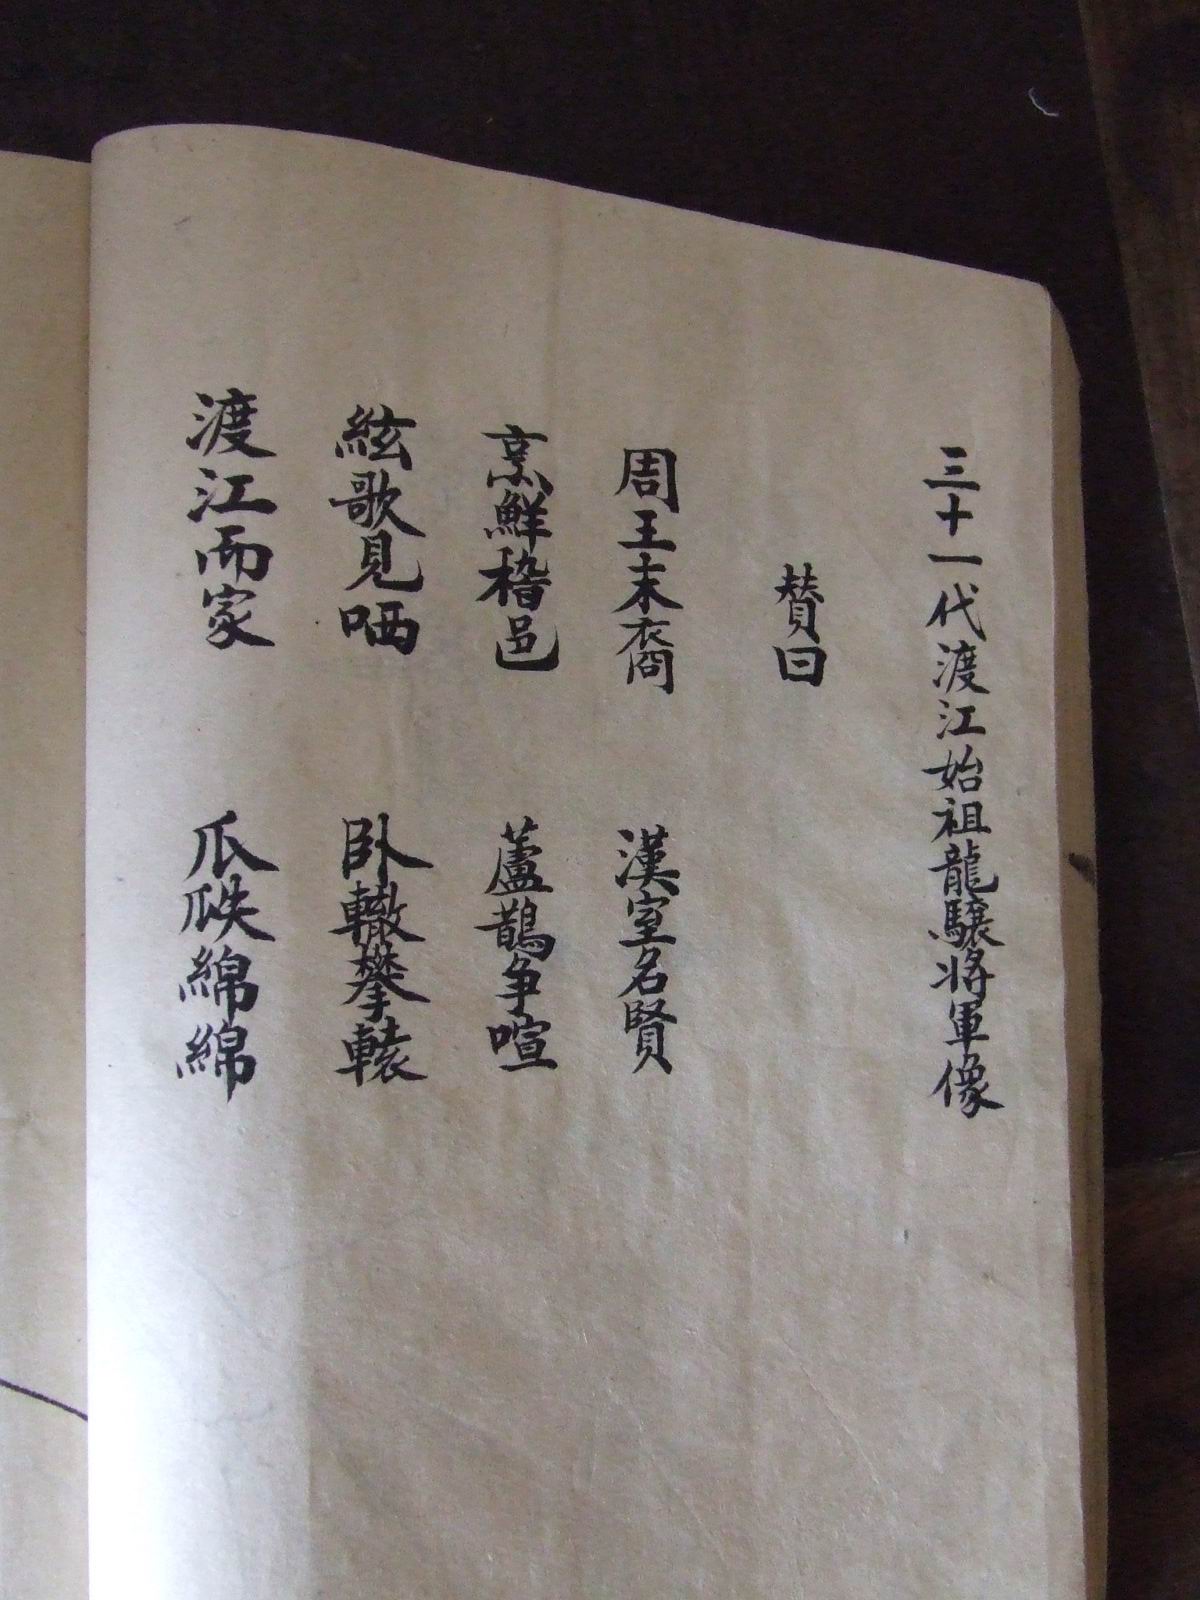 三十一代渡江始祖龍驤將軍像
賛曰
周王末裔　漢室名賢
烹鮮稽邑　蘆鵲争喧
絃歌見哂　卧轍攀轅
渡江而家　瓜瓞綿綿